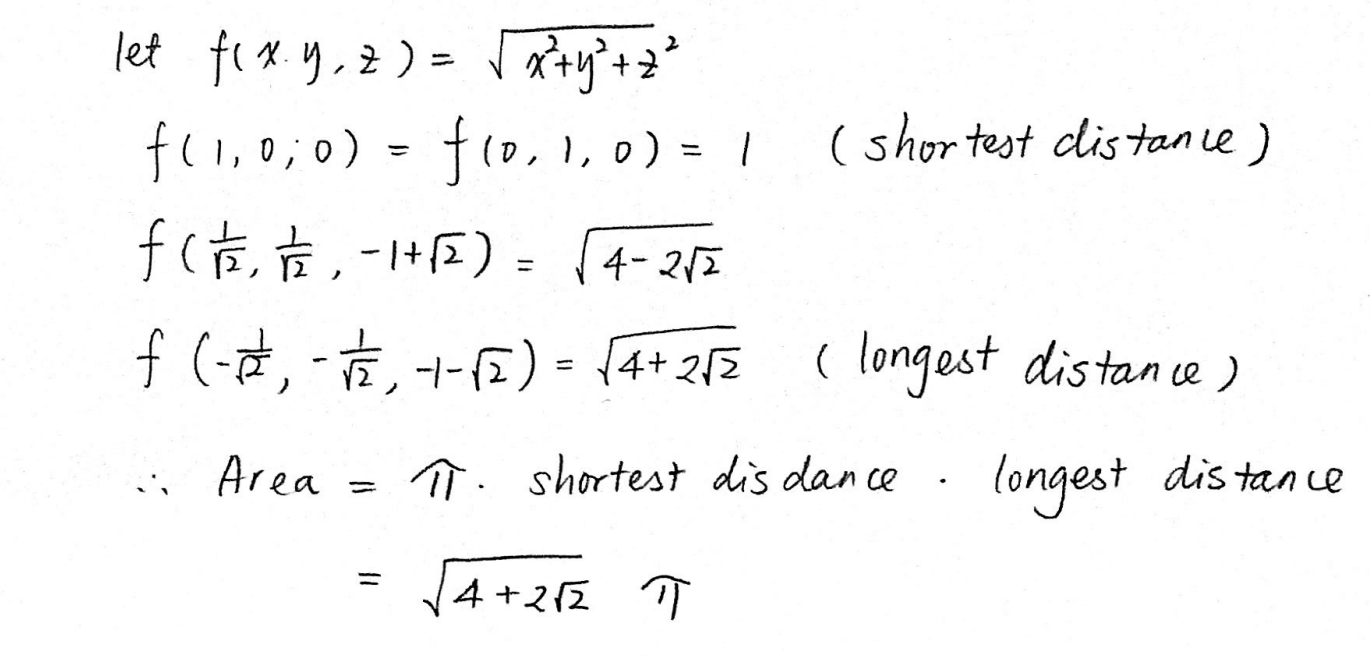 let f(x.y,z) = √(x²+y²+z²)
f(1,0,0) = f(0,1,0) = 1 (shortest distance)
f(1/√2, 1/√2, -1+√2) = √(4-2√2)
f(-1/√2, -1/√2, -1-√2) = √(4+2√2) (longest distance)
∴ Area = π · shortest disdance · longest distance
= √(4+2√2) π